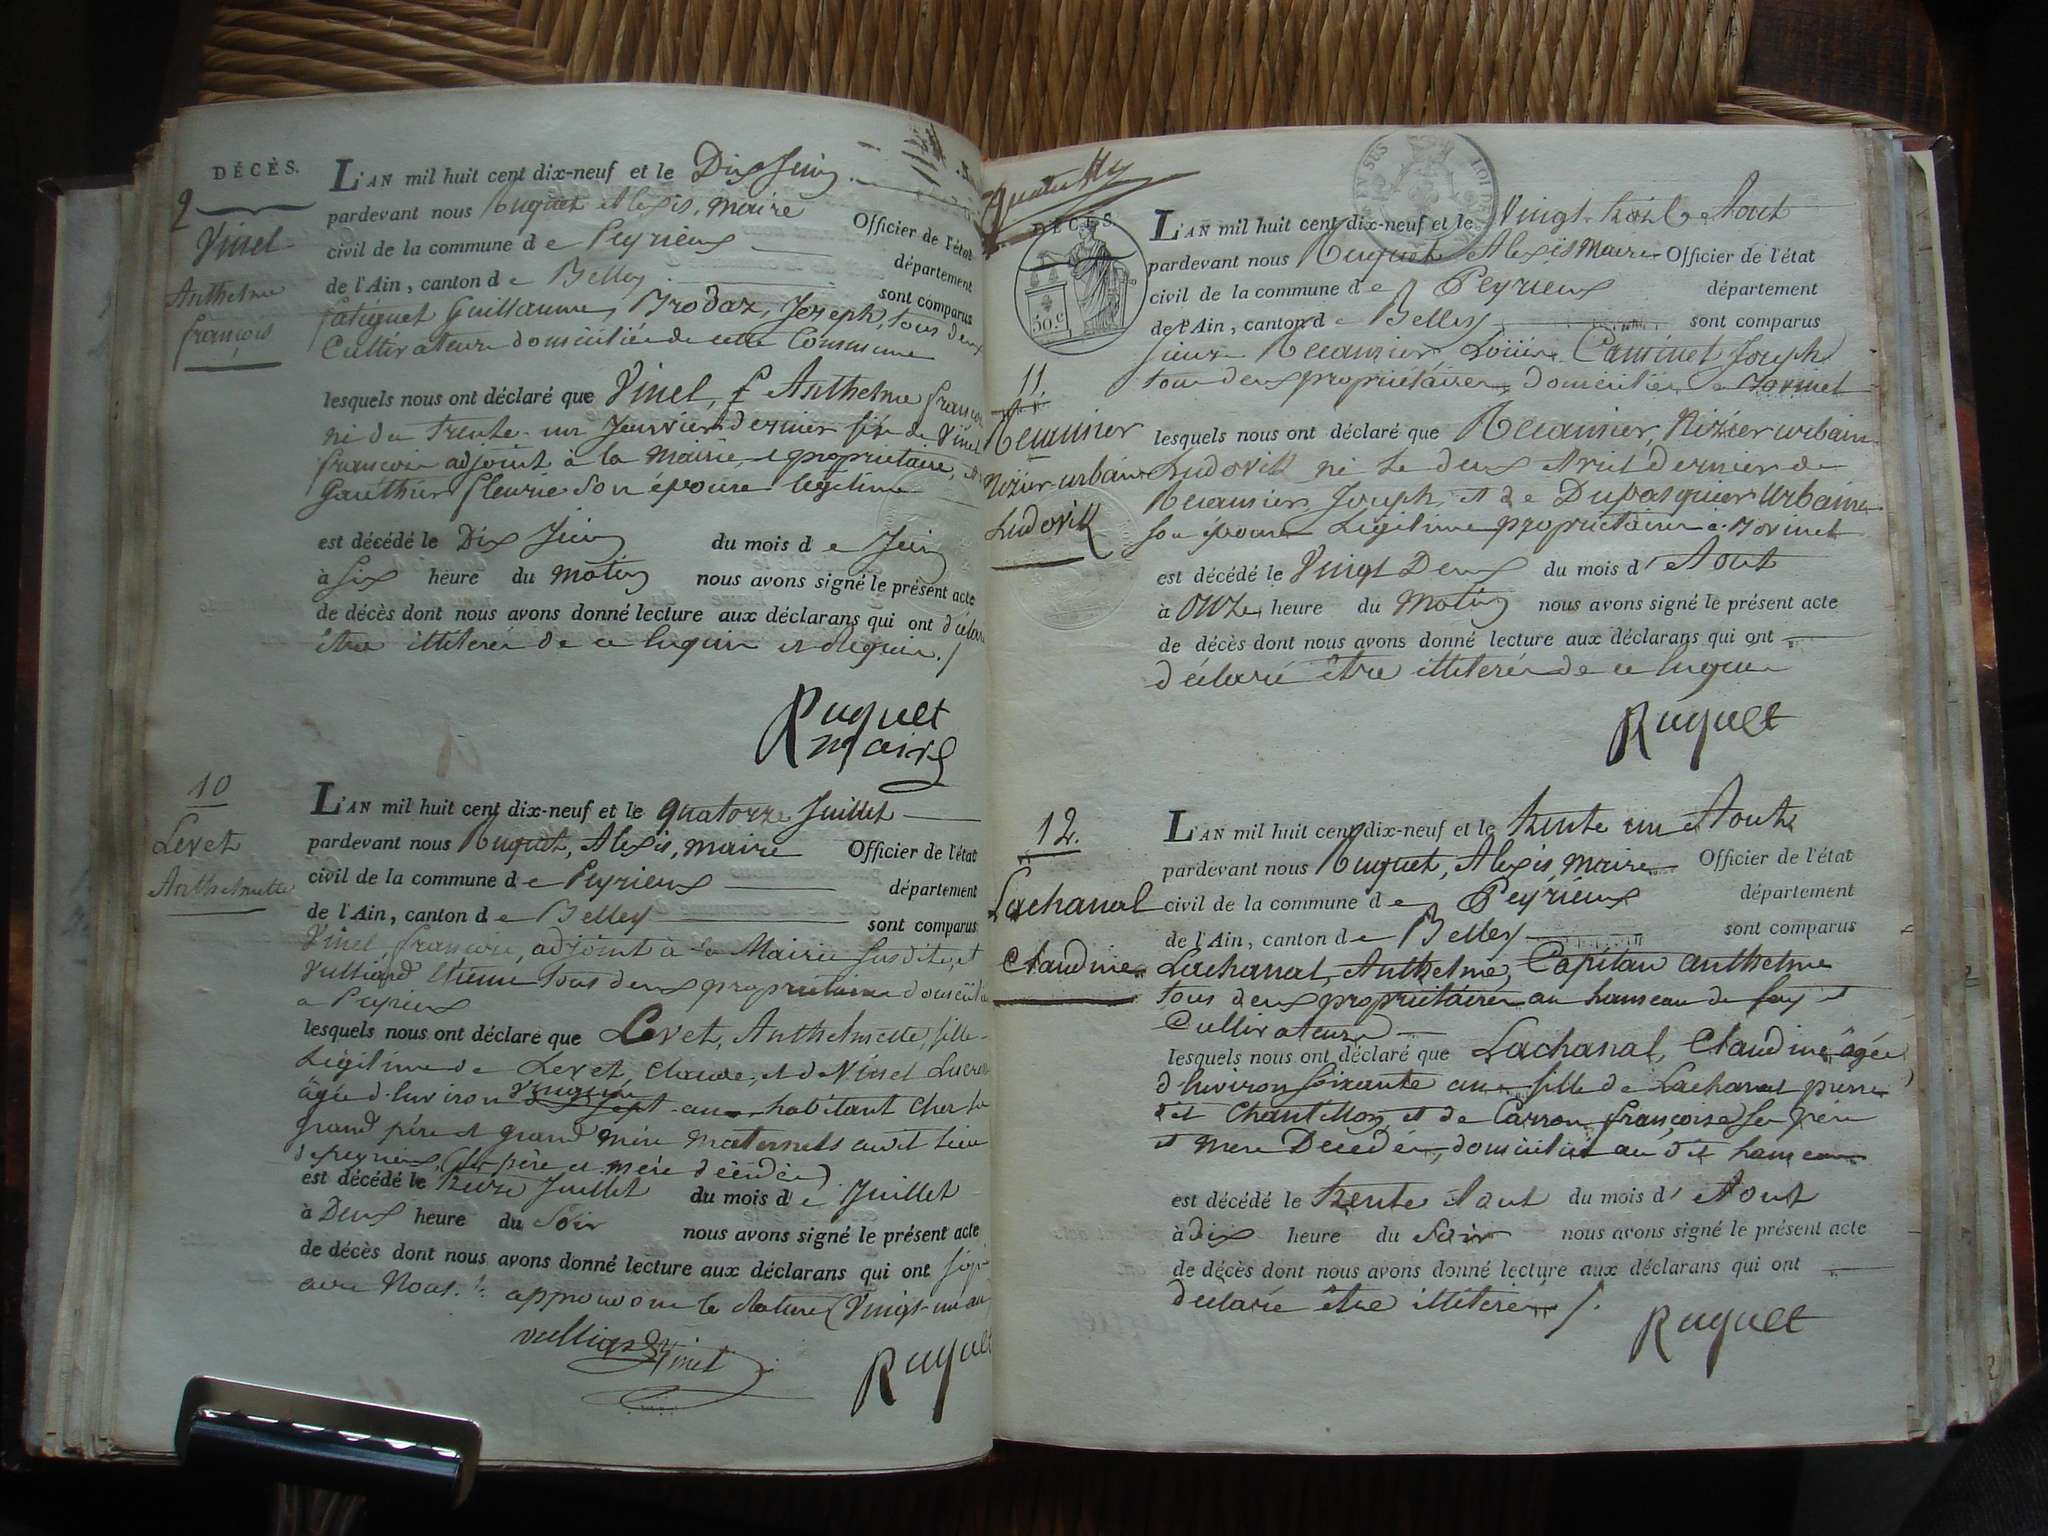 DÉCÈS.
9
Vinel
Anthelme
françois
L'AN mil huit cent dix-neuf et le Dix Juin
pardevant nous Ruquet Alexis, maire Officier de l'état
civil de la commune d e Peyrieux département
de l'Ain, canton d e Belley sont comparus
fatiguet Guillaume, Brodaz, Joseph, tous deux
Cultivateurs domiciliés de cette Commune
lesquels nous ont déclaré que Vinel, Anthelme françois
né du trente-un Janvier dernier fils de Vinel
françois adjoint à la mairie, propriétaire, et
Gauthier fleurie son épouse légitime
est décédé le Dix Juin du mois d e Juin
à Six heure du matin nous avons signé le présent acte
de décès dont nous avons donné lecture aux déclarans qui ont déclaré
être illiteré de ce
Ruquet
maire
10
Levet
Anthelmette
L'AN mil huit cent dix-neuf et le quatorze Juillet
pardevant nous Ruquet, Alexis, maire Officier de l'état
civil de la commune d e Peyrieux département
de l'Ain, canton d e Belley sont comparus
Vinel, françois, adjoint à la Mairie susdite, et
Vulliard Etienne tous deux propriétaires domicilié
a Peyrieux
lesquels nous ont déclaré que Levet, Anthelmette, fille
Légitime de Levet, Claude, et de Vinel
âgée d'huviron sept ans habitant chez le
grand père et grand mère maternels audit lieu
de peyrieux, (ses père et mère décédés)
est décédé le treize Juillet du mois d e Juillet
à Deux heure du Soir nous avons signé le présent acte
de décès dont nous avons donné lecture aux déclarans qui ont signé
avec Nous. approuvons la Rature (Vingt-un an
vulliard Vinel
Ruquet
DÉCÈS
50.c
11.
Recamier
Nizier-urbain
Ludovik
L'AN mil huit cent dix-neuf et le Vingt-trois Aout
pardevant nous Ruquet Alexis Maire Officier de l'état
civil de la commune d e Peyrieux département
de l'Ain, canton d e Belley sont comparus
sieurs Recamier, Caminet Joseph
tous deux propriétaires, domiciliés a
lesquels nous ont déclaré que Recamier, Nizier urbain
Ludovik né le deux Avril dernier de
Recamier, Joseph, et de Dupasquier Urbaine
son épouse Légitime propriétaires à
est décédé le Vingt Deux du mois d' Aout
à Onze heure du Matin nous avons signé le présent acte
de décès dont nous avons donné lecture aux déclarans qui ont
déclaré être illiterés de ce
Ruquet
12.
Lachanal
Claudine
L'AN mil huit cent dix-neuf et le trente un Aout
pardevant nous Ruquet, Alexis, Maire Officier de l'état
civil de la commune d e Peyrieux département
de l'Ain, canton d e Belley sont comparus
Lachanal, Anthelme, Capitan anthelme
tous deux propriétaires au hameau de fay et
Cultivateurs
lesquels nous ont déclaré que Lachanal, Claudine âgée
d'huviron soixante ans fille de Lachanal pierre
dit Chantillon, et de Carron françoise ses père
et mère Décédés, domicilié au dit hameau
est décédé le trente Aout du mois d' Aout
à dix heure du Soir nous avons signé le présent acte
de décès dont nous avons donné lecture aux déclarans qui ont
declaré être illiterés
Ruquet